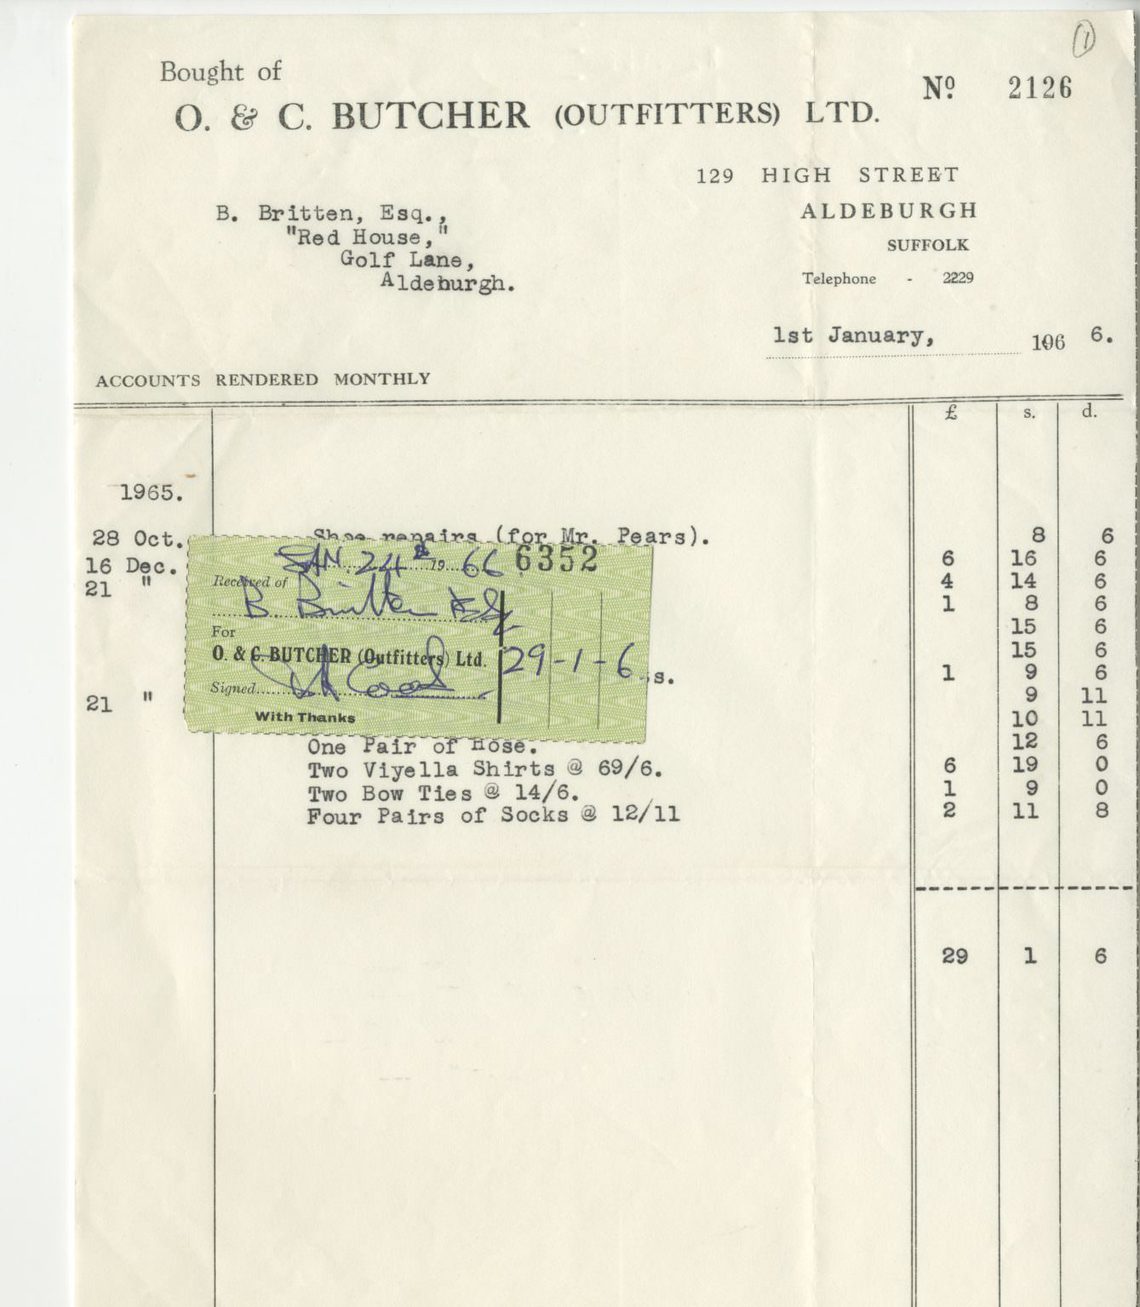 1
Bought of
Nº 2126
O. & C. BUTCHER (OUTFITTERS) LTD.
129 HIGH STREET
ALDEBURGH
SUFFOLK
Telephone - 2229
B. Britten, Esq.,
"Red House,"
Golf Lane,
Aldeburgh.
1st January, 196 6.
ACCOUNTS RENDERED MONTHLY
£ s. d.
1965.
28 Oct. Shoe repairs (for Mr. Pears). 8 6
16 Dec. 6 16 6
21 " 4 14 6
1 8 6
15 6
15 6
s. 1 9 6
9 11
21 " 10 11
One Pair of Hose. 12 6
Two Viyella Shirts @ 69/6. 6 19 0
Two Bow Ties @ 14/6. 1 9 0
Four Pairs of Socks @ 12/11 2 11 8
29 1 6
JAN. 24 19 66 6352
Received of
B. Britten Esq
For
O. & C. BUTCHER (Outfitters) Ltd. 29-1-6
Signed
With Thanks